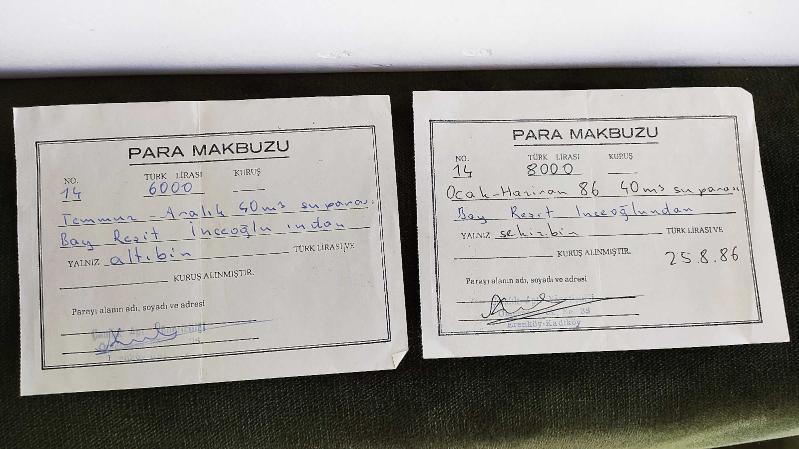 PARA MAKBUZU
NO. TÜRK LİRASI KURUŞ
14 6000
Temmuz - Aralık 40m3 su parası.
Bay Reşit İnceoğlu ından
YALNIZ altıbin TÜRK LİRASI VE
KURUŞ ALINMIŞTIR.
Parayı alanın adı, soyadı ve adresi
PARA MAKBUZU
NO. TÜRK LİRASI KURUŞ
14 8000
Ocak-Haziran 86 40m3 su parası
Bay Reşit İnceoğlundan
YALNIZ sekizbin TÜRK LİRASI VE
KURUŞ ALINMIŞTIR.
25.8.86
Parayı alanın adı, soyadı ve adresi
Erenköy-Kadıköy